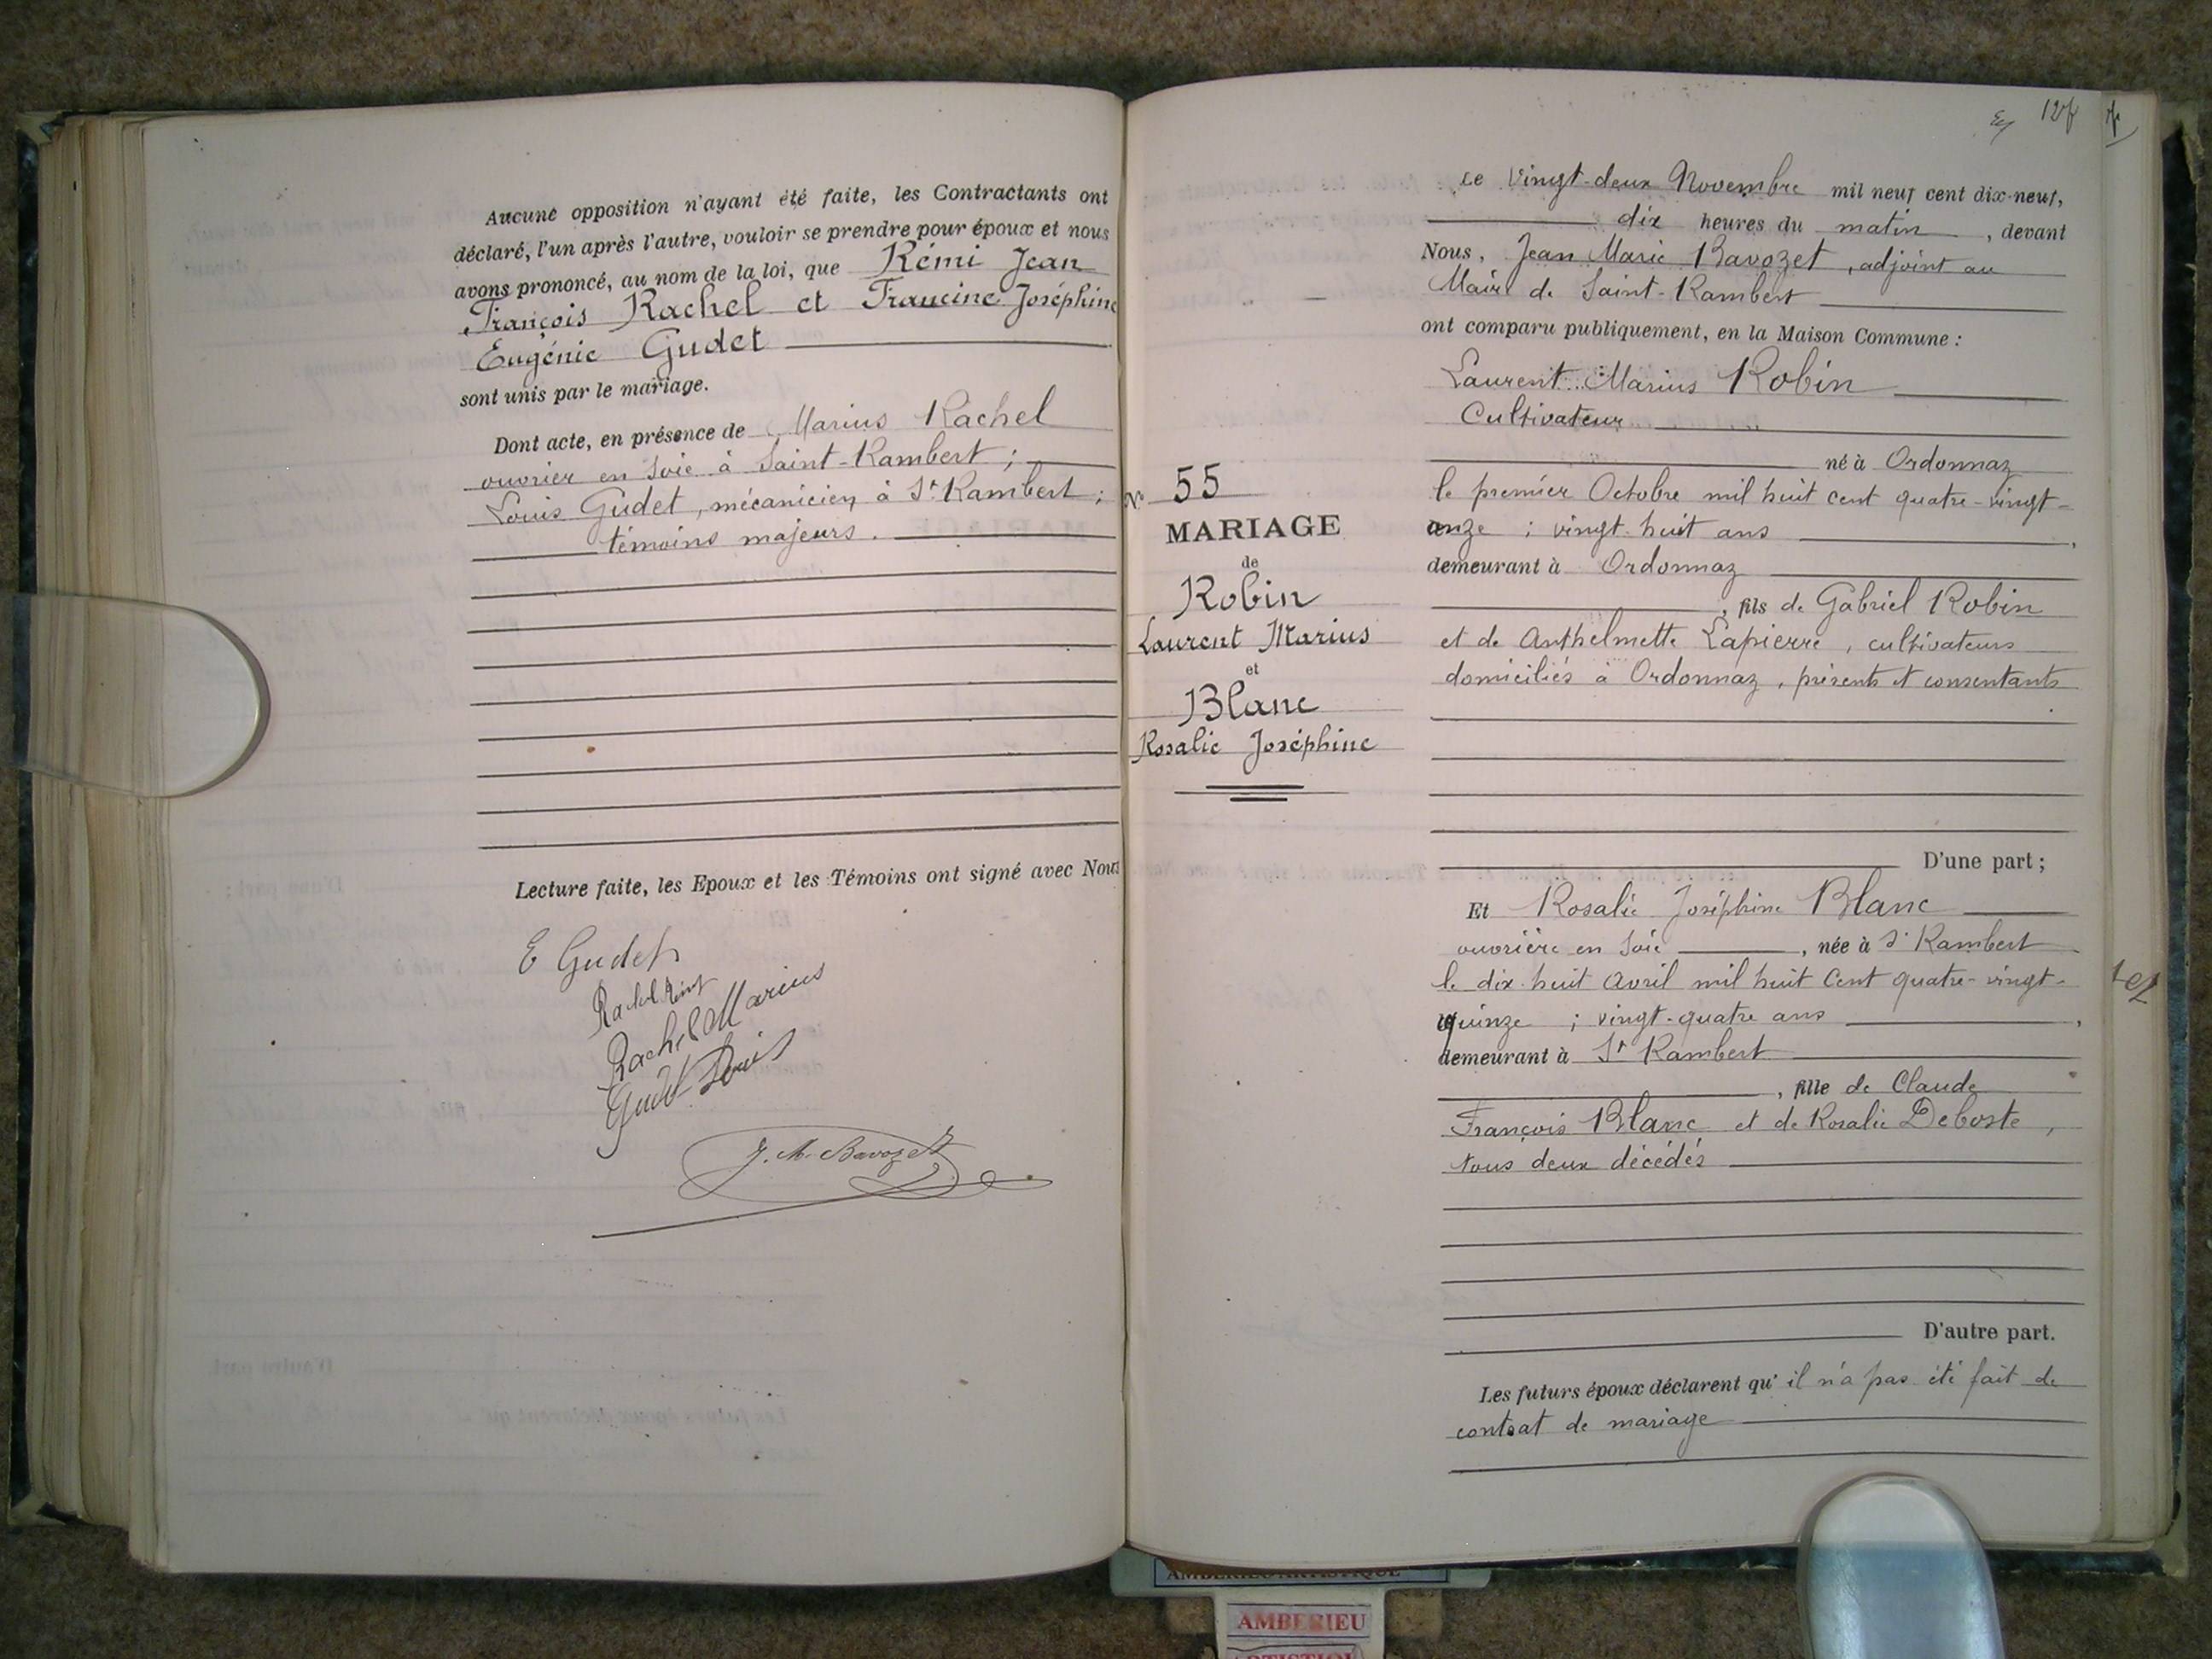 Aucune opposition n'ayant été faite, les Contractants ont
déclaré, l'un après l'autre, vouloir se prendre pour époux et nous
avons prononcé, au nom de la loi, que Rémi Jean
François Rachel et Francine Joséphine
Eugénie Gudet
sont unis par le mariage.
Dont acte, en présence de Marius Rachel
ouvrier en soie à Saint-Rambert ;
Louis Gudet, mécanicien à St Rambert ;
témoins majeurs.
Lecture faite, les Epoux et les Témoins ont signé avec Nous
E Gudet
Rachel Rémi
Rachel Marius
Gudet Louis
J. M. Bavozet
No 55
MARIAGE
de
Robin
Laurent Marius
et
Blanc
Rosalie Joséphine
Le vingt-deux Novembre mil neuf cent dix-neuf,
dix heures du matin, devant
Nous, Jean Marie Bavozet, adjoint au
Maire de Saint-Rambert
ont comparu publiquement, en la Maison Commune :
Laurent Marius Robin
Cultivateur
né à Ordonnaz
le premier Octobre mil huit cent quatre-vingt-
onze ; vingt-huit ans,
demeurant à Ordonnaz
, fils de Gabriel Robin
et de Anthelmette Lapierre, cultivateurs
domiciliés à Ordonnaz, présents et consentants
D'une part ;
Et Rosalie Joséphine Blanc
ouvrière en soie, née à St Rambert
le dix-huit Avril mil huit cent quatre-vingt-
quinze ; vingt-quatre ans,
demeurant à St Rambert
, fille de Claude
François Blanc et de Rosalie Deboste,
tous deux décédés
D'autre part.
Les futurs époux déclarent qu'il n'a pas été fait de
contrat de mariage
AMBERIEU ARTISTIQUE
AMBERIEU